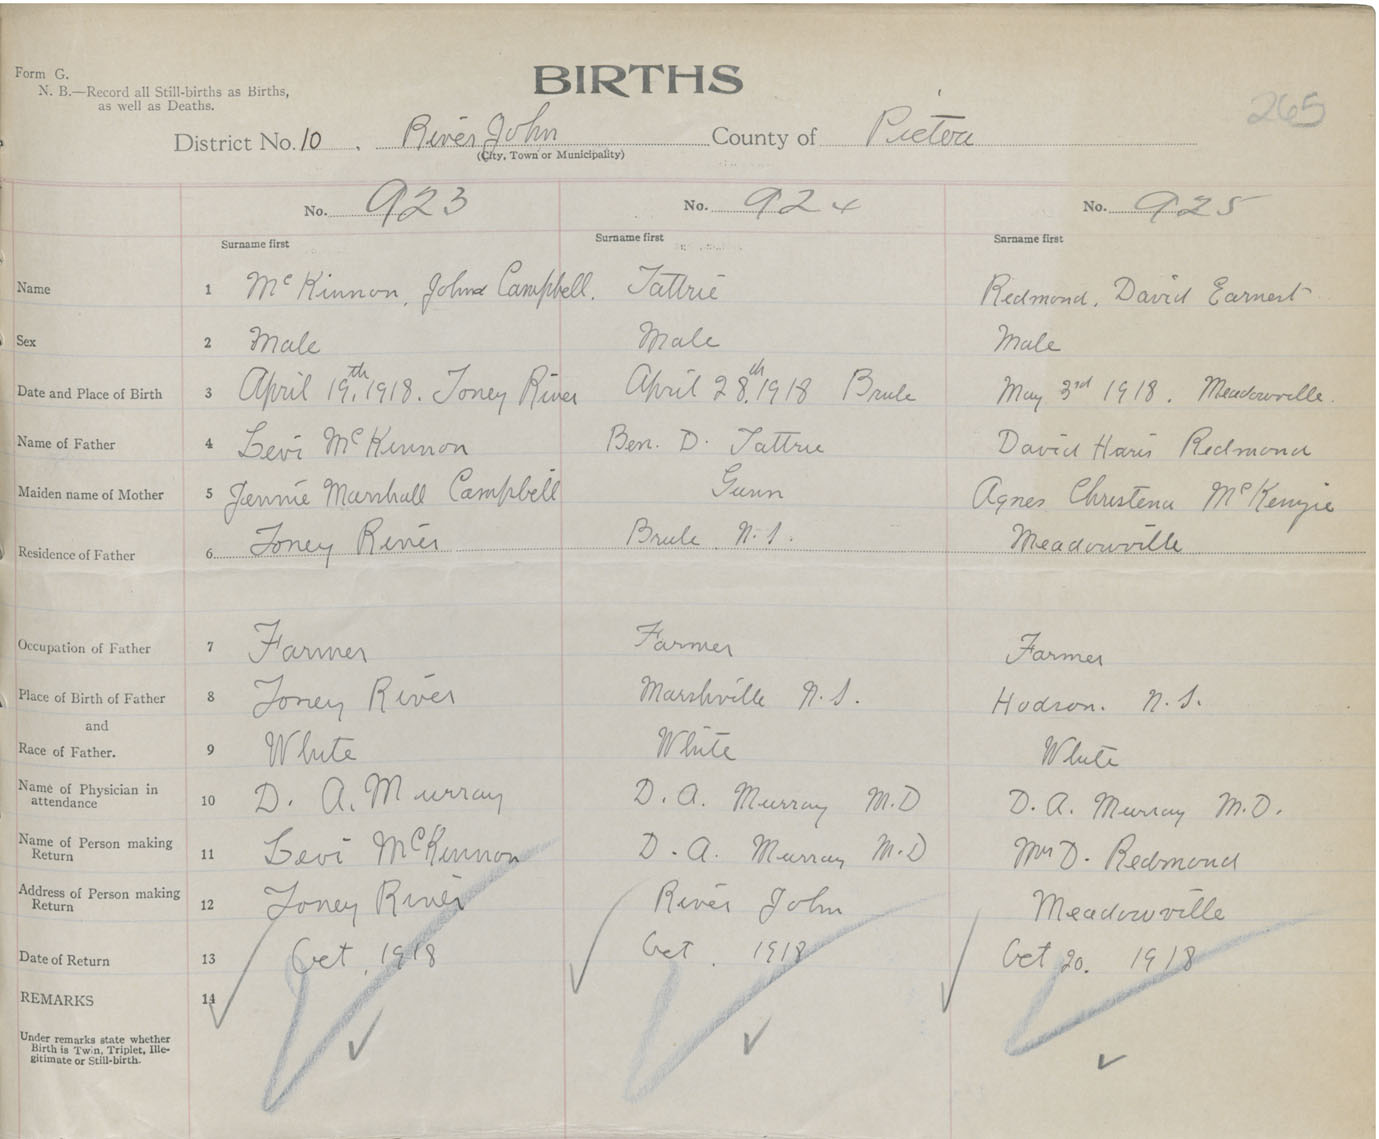 Form G.
N. B.—Record all Still-births as Births,
as well as Deaths.
BIRTHS
265
District No. 10 , River John County of Pictou
(City, Town or Municipality)
No. 923 No. 924 No. 925
Surname first Surname first Surname first
Name 1 McKinnon, John Campbell. Tattrie Redmond, David Earnest
Sex 2 Male Male Male
Date and Place of Birth 3 April 19th, 1918. Toney River April 28th, 1918 Brule May 3rd 1918. Meadowville.
Name of Father 4 Levi McKinnon Ben. D. Tattrie David Haris Redmond
Maiden name of Mother 5 Jennie Marshall Campbell Gunn Agnes Christena McKenzie
Residence of Father 6 Toney River Brule N.S. Meadowville
Occupation of Father 7 Farmer Farmer Farmer
Place of Birth of Father 8 Toney River Marshville N.S. Hodson. N.S.
and
Race of Father. 9 White White White
Name of Physician in
attendance 10 D. A. Murray D. A. Murray M.D D. A. Murray M.D.
Name of Person making
Return 11 Levi McKinnon D. A. Murray M.D Mrs D. Redmond
Address of Person making
Return 12 Toney River River John Meadowville
Date of Return 13 Oct, 1918 Oct. 1918 Oct 20. 1918
REMARKS 14
Under remarks state whether
Birth is Twin, Triplet, Ille-
gitimate or Still-birth.